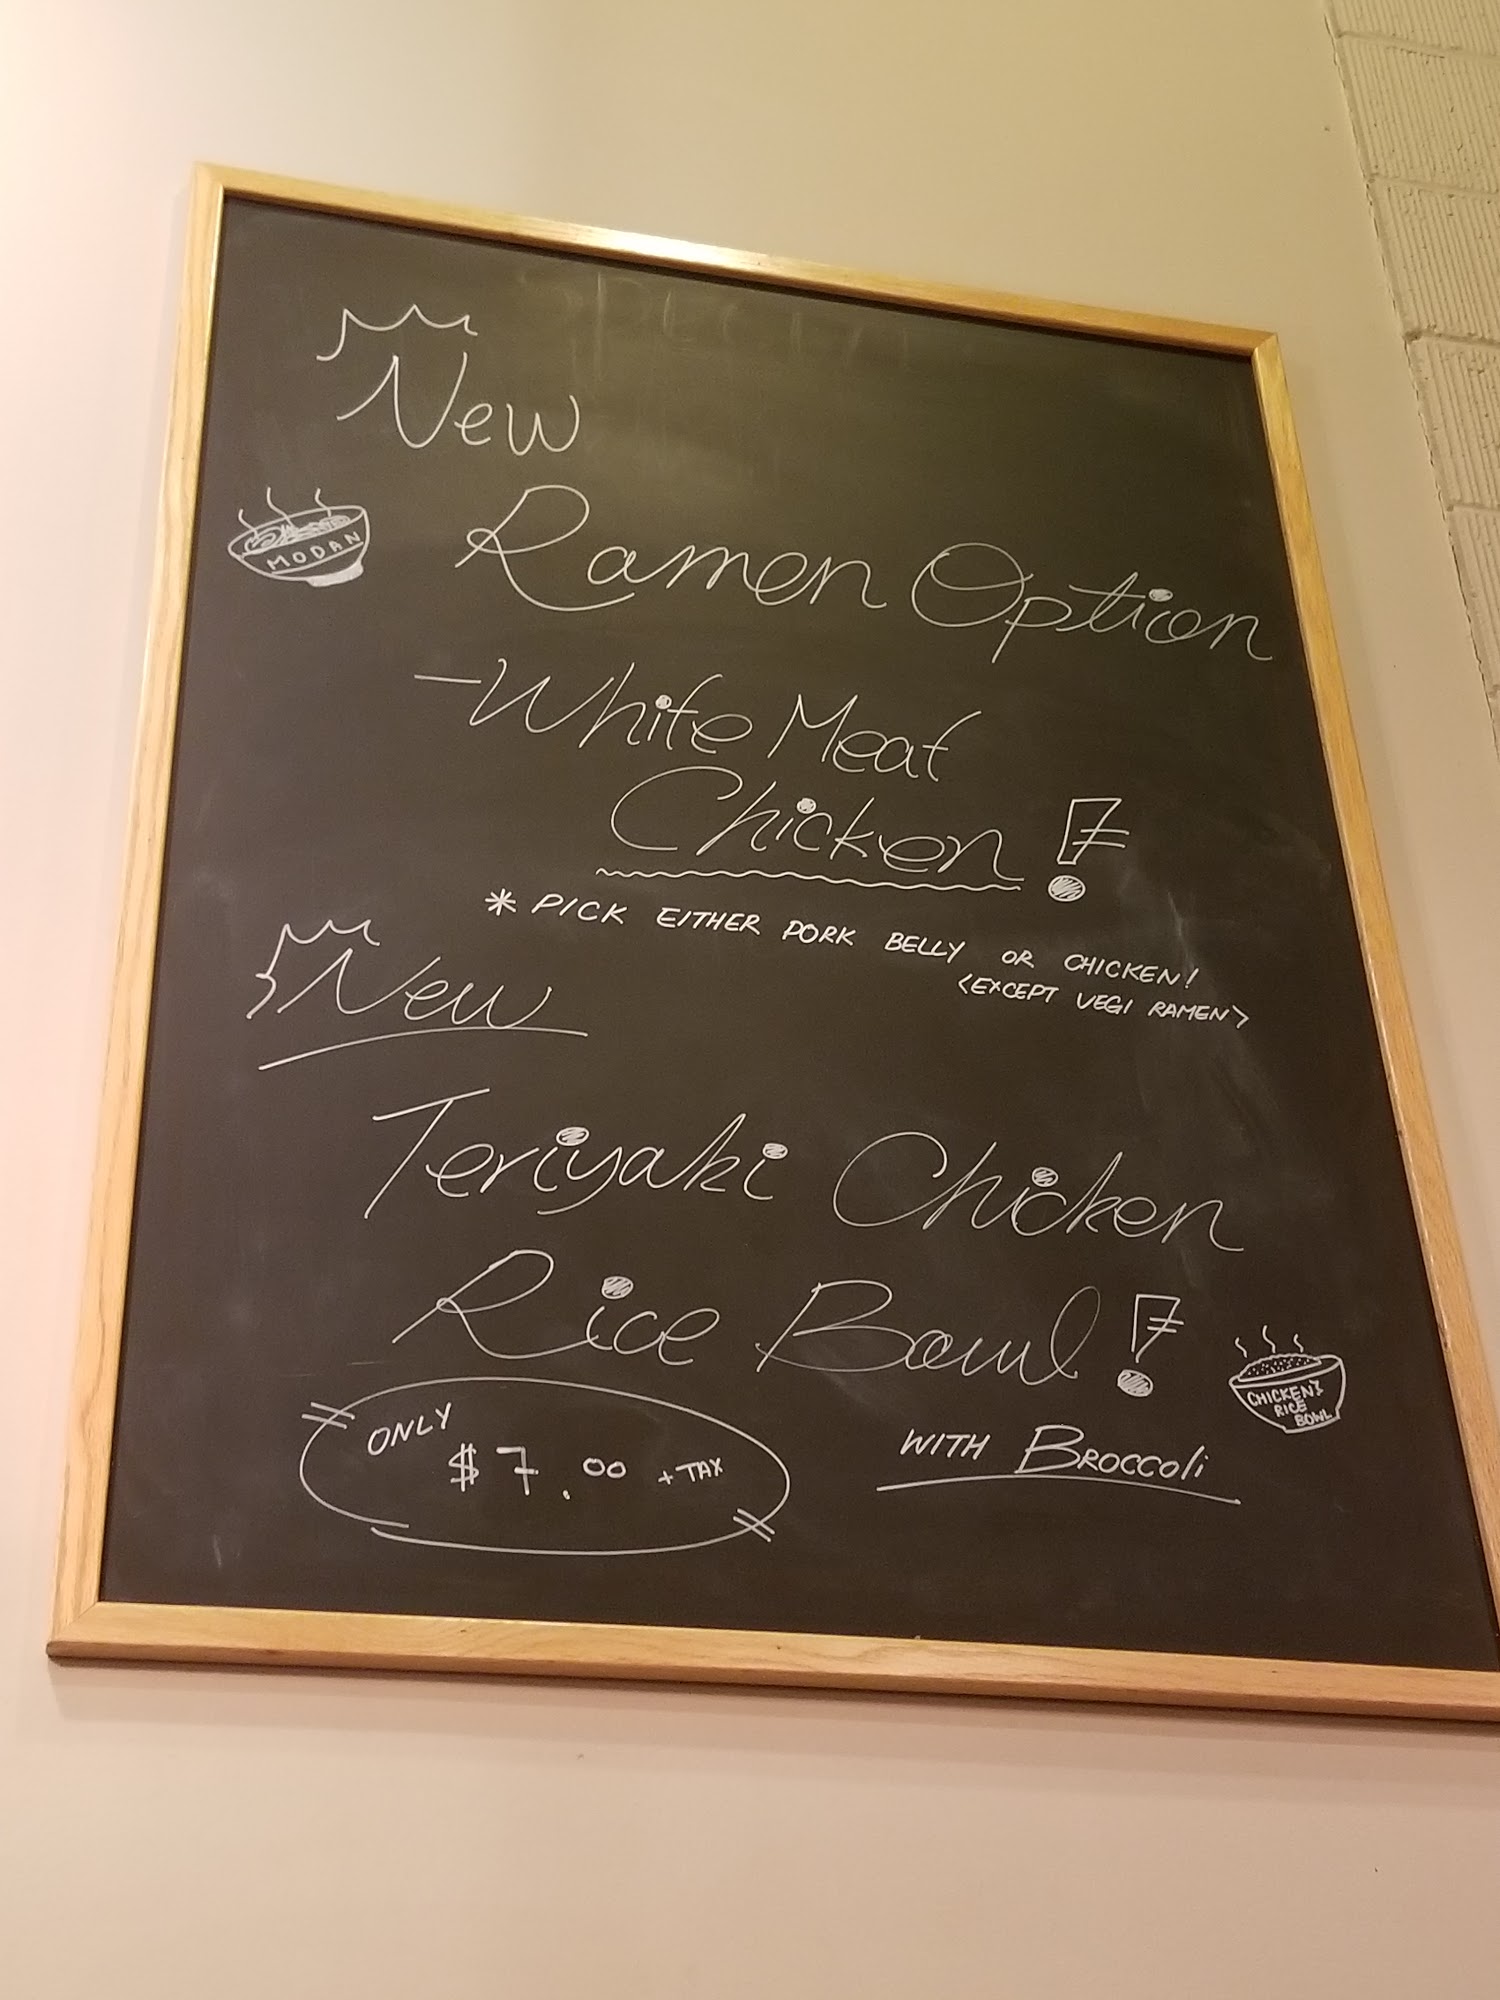 New
MODAN
Ramen Option
- White Meat
Chicken !
* PICK EITHER PORK BELLY OR CHICKEN!
<EXCEPT VEGI RAMEN>
New
Teriyaki Chicken
Rice Bowl !
CHICKEN
RICE
BOWL
WITH BROCCOLi
ONLY
$7.00 + TAX